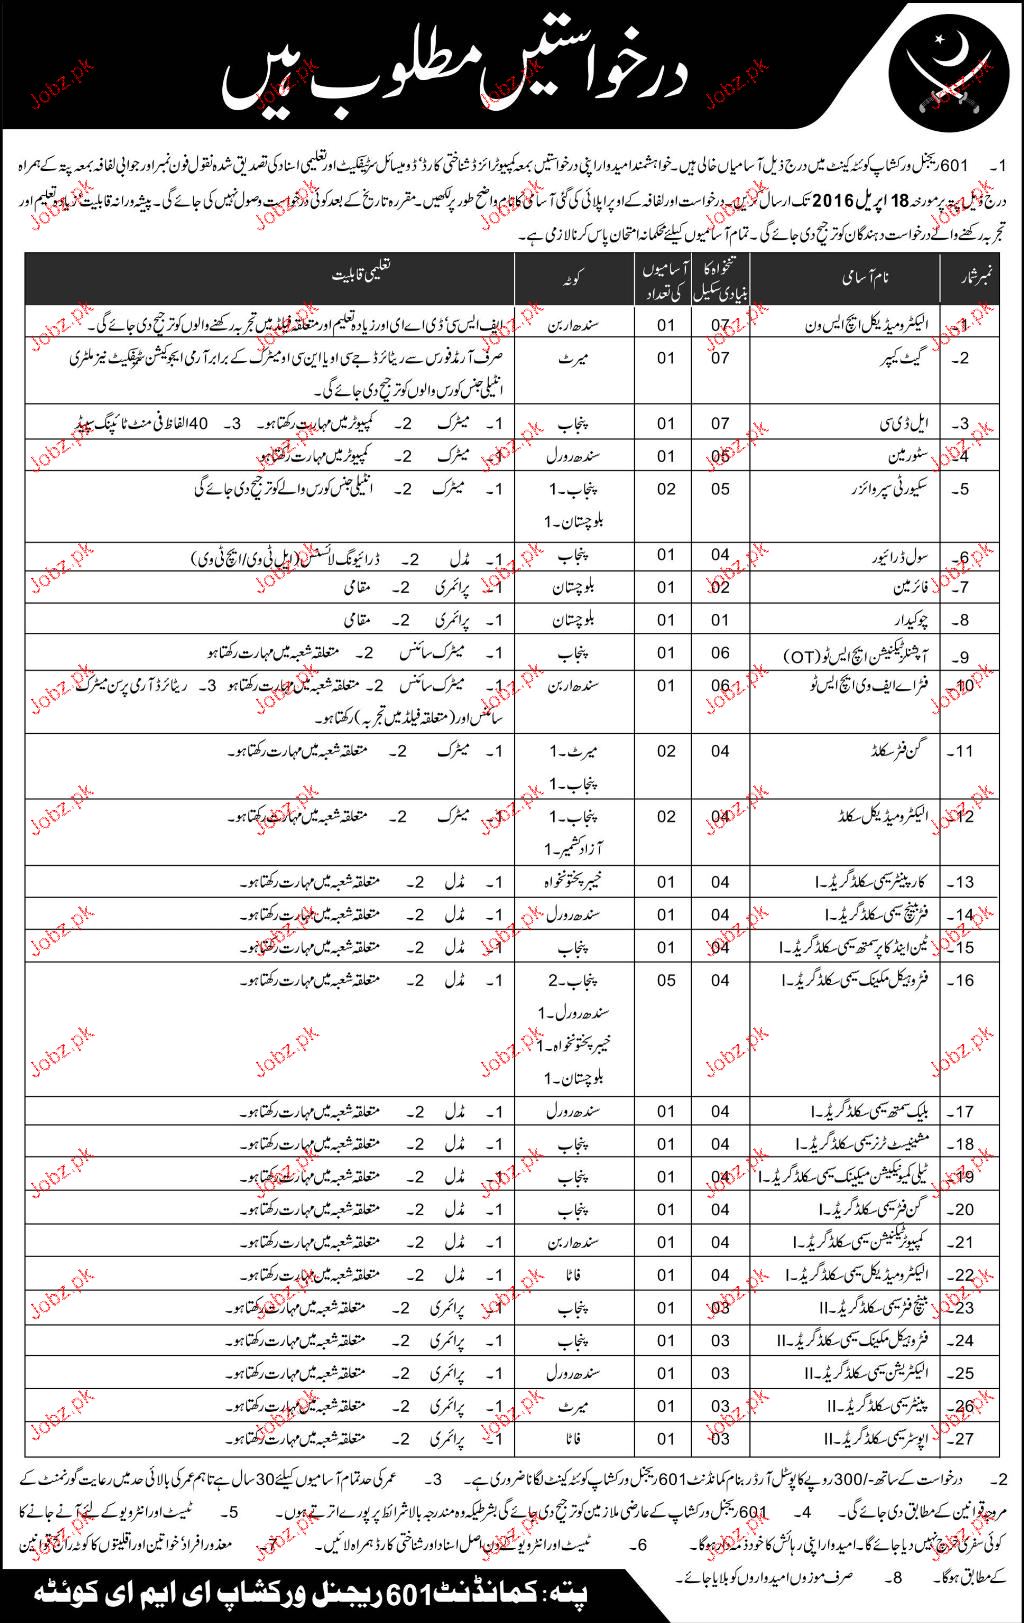 درخواستیں مطلوب ہیں
1۔ 601 ریجنل ورکشاپ کوئٹہ کینٹ میں درج ذیل آسامیاں خالی ہیں۔ خواہشمند امیدوار اپنی درخواستیں بمعہ کمپیوٹرائزڈ شناختی کارڈ، ڈومیسائل سرٹیفکیٹ اور تعلیمی اسناد کی تصدیق شدہ نقول فون نمبر اور جوابی لفافہ بمعہ پتہ کے ہمراہ
درج ذیل پتہ پر مورخہ 18 اپریل 2016 تک ارسال کریں۔ درخواست اور لفافہ کے اوپر اپلائی کی گئی آسامی کا نام واضح طور پر لکھیں۔ مقررہ تاریخ کے بعد کوئی درخواست وصول نہیں کی جائے گی۔ پیشہ ورانہ قابلیت، زیادہ تعلیم اور
تجربہ رکھنے والے درخواست دہندگان کو ترجیح دی جائے گی۔ تمام آسامیوں کیلئے محکمانہ امتحان پاس کرنا لازمی ہے۔
نمبر شمار نام آسامی تنخواہ کا بنیادی سکیل آسامیوں کی تعداد کوٹہ تعلیمی قابلیت
1۔ الیکٹرو میڈیکل ایچ ایس ون 07 01 سندھ اربن ایف ایس سی، ڈی اے ای اور زیادہ تعلیم اور متعلقہ فیلڈ میں تجربہ رکھنے والوں کو ترجیح دی جائے گی۔
2۔ گیٹ کیپر 07 01 میرٹ صرف آرمڈ فورس سے ریٹائرڈ جے سی او یا این سی او میٹرک کے برابر آرمی ایجوکیشن سرٹیفکیٹ نیز ملٹری
انٹیلی جنس کورس والوں کو ترجیح دی جائے گی۔
3۔ ایل ڈی سی 07 01 پنجاب 1۔ میٹرک 2۔ کمپیوٹر میں مہارت رکھتا ہو۔ 3۔ 40 الفاظ فی منٹ ٹائپنگ سپیڈ
4۔ سٹور مین 05 01 سندھ رورل 1۔ میٹرک 2۔ کمپیوٹر میں مہارت رکھتا ہو
5۔ سکیورٹی سپروائزر 05 02 پنجاب۔1 1۔ میٹرک 2۔ انٹیلی جنس کورس والے کو ترجیح دی جائے گی
بلوچستان۔1
6۔ سول ڈرائیور 04 01 پنجاب 1۔ مڈل 2۔ ڈرائیونگ لائسنس (ایل ٹی وی/ایچ ٹی وی)
7۔ فائر مین 02 01 بلوچستان 1۔ پرائمری 2۔ مقامی
8۔ چوکیدار 01 01 بلوچستان 1۔ پرائمری 2۔ مقامی
9۔ آپشنلز ٹیکنیشن ایچ ایس ٹو (OT) 06 01 پنجاب 1۔ میٹرک سائنس 2۔ متعلقہ شعبہ میں مہارت رکھتا ہو
10۔ فٹر اے ایف وی ایچ ایس ٹو 06 01 سندھ اربن 1۔ میٹرک سائنس 2۔ متعلقہ شعبہ میں مہارت رکھتا ہو 3۔ ریٹائرڈ آرمی پرسن میٹرک
سائنس اور (متعلقہ فیلڈ میں تجربہ) رکھتا ہو۔
11۔ گن فٹر سکلڈ 04 02 میرٹ۔1 1۔ میٹرک 2۔ متعلقہ شعبہ میں مہارت رکھتا ہو۔
پنجاب۔1
12۔ الیکٹرو میڈیکل سکلڈ 04 02 پنجاب۔1 1۔ میٹرک 2۔ متعلقہ شعبہ میں مہارت رکھتا ہو۔
آزاد کشمیر۔1
13۔ کارپینٹر سیمی سکلڈ گریڈ۔I 04 01 خیبر پختونخواہ 1۔ مڈل 2۔ متعلقہ شعبہ میں مہارت رکھتا ہو۔
14۔ فٹر بینچ سیمی سکلڈ گریڈ۔I 04 01 سندھ رورل 1۔ مڈل 2۔ متعلقہ شعبہ میں مہارت رکھتا ہو۔
15۔ ٹین اینڈ کاپر سمتھ سیمی سکلڈ گریڈ۔I 04 01 پنجاب 1۔ مڈل 2۔ متعلقہ شعبہ میں مہارت رکھتا ہو۔
16۔ فٹر وہیکل مکینک سیمی سکلڈ گریڈ۔I 04 05 پنجاب۔2 1۔ مڈل 2۔ متعلقہ شعبہ میں مہارت رکھتا ہو۔
سندھ رورل۔1
خیبر پختونخواہ۔1
بلوچستان۔1
17۔ بلیک سمتھ سیمی سکلڈ گریڈ۔I 04 01 سندھ رورل 1۔ مڈل 2۔ متعلقہ شعبہ میں مہارت رکھتا ہو۔
18۔ مشینیسٹ ٹرنر سیمی سکلڈ گریڈ۔I 04 01 پنجاب 1۔ مڈل 2۔ متعلقہ شعبہ میں مہارت رکھتا ہو۔
19۔ ٹیلی کمیونیکیشن میکینک سیمی سکلڈ گریڈ۔I 04 01 پنجاب 1۔ مڈل 2۔ متعلقہ شعبہ میں مہارت رکھتا ہو۔
20۔ گن فٹر سیمی سکلڈ گریڈ۔I 04 01 پنجاب 1۔ مڈل 2۔ متعلقہ شعبہ میں مہارت رکھتا ہو۔
21۔ کمپیوٹر ٹیکنیشن سیمی سکلڈ گریڈ۔I 04 01 سندھ اربن 1۔ مڈل 2۔ متعلقہ شعبہ میں مہارت رکھتا ہو۔
22۔ الیکٹرو میڈیکل سیمی سکلڈ گریڈ۔I 04 01 فاٹا 1۔ مڈل 2۔ متعلقہ شعبہ میں مہارت رکھتا ہو۔
23۔ بینچ فٹر سیمی سکلڈ گریڈ۔II 03 01 پنجاب 1۔ پرائمری 2۔ متعلقہ شعبہ میں مہارت رکھتا ہو۔
24۔ فٹر وہیکل مکینک سیمی سکلڈ گریڈ۔II 03 01 پنجاب 1۔ پرائمری 2۔ متعلقہ شعبہ میں مہارت رکھتا ہو۔
25۔ الیکٹریشن سیمی سکلڈ گریڈ۔II 03 01 سندھ رورل 1۔ پرائمری 2۔ متعلقہ شعبہ میں مہارت رکھتا ہو۔
26۔ پینٹر سیمی سکلڈ گریڈ۔II 03 01 میرٹ 1۔ پرائمری 2۔ متعلقہ شعبہ میں مہارت رکھتا ہو۔
27۔ اپوسٹر سیمی سکلڈ گریڈ۔II 03 01 فاٹا 1۔ پرائمری 2۔ متعلقہ شعبہ میں مہارت رکھتا ہو۔
2۔ درخواست کے ساتھ -/300 روپے کا پوسٹل آرڈر بنام کمانڈنٹ 601 ریجنل ورکشاپ کوئٹہ کینٹ لگانا ضروری ہے۔ 3۔ عمر کی حد تمام آسامیوں کیلئے 30 سال ہے تاہم عمر کی بالائی حد میں رعایت گورنمنٹ کے
مروجہ قوانین کے مطابق دی جائے گی۔ 4۔ 601 ریجنل ورکشاپ کے عارضی ملازمین کو ترجیح دی جائے گی بشرطیکہ وہ مندرجہ بالا شرائط پر پورے اترتے ہوں۔ 5۔ ٹیسٹ اور انٹرویو کے لئے آنے جانے کا
کوئی سفری خرچ نہیں دیا جائے گا۔ امیدوار اپنی رہائش کا خود ذمہ دار ہو گا۔ 6۔ ٹیسٹ اور انٹرویو کے دن اصل اسناد اور شناختی کارڈ ہمراہ لائیں۔ 7۔ معذور افراد، خواتین اور اقلیتوں کا کوٹہ رائج قوانین
کے مطابق ہوگا۔ 8۔ صرف موزوں امیدواروں کو بلایا جائے۔
پتہ: کمانڈنٹ 601 ریجنل ورکشاپ ای ایم ای کوئٹہ
Jobz.pk